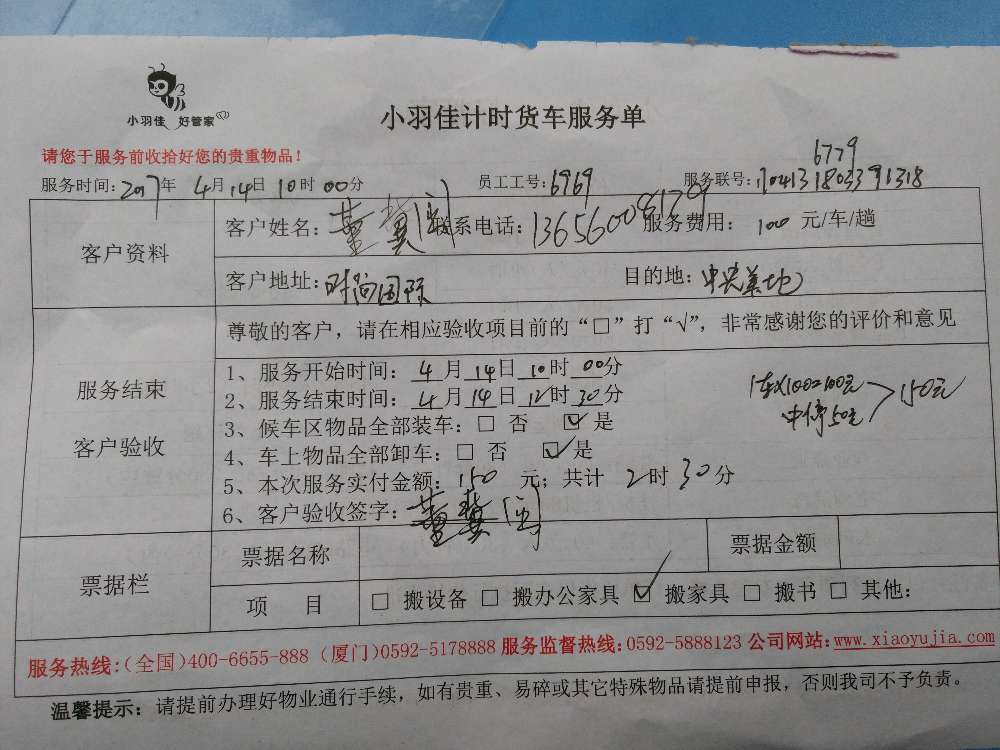 小羽佳 好管家
小羽佳计时货车服务单
请您于服务前收拾好您的贵重物品!
6779
服务时间:2017年 4月14日 10时00分 员工工号:6969 服务联号:170413180339 1318
客户资料
客户姓名: 联系电话:13656008179 服务费用: 100 元/车/趟
客户地址:时尚国际 目的地:中央美地
服务结束
客户验收
尊敬的客户，请在相应验收项目前的“□”打“√”，非常感谢您的评价和意见
1、服务开始时间: 4月14日10时00分
2、服务结束时间: 4月14日12时30分
3、候车区物品全部装车:□ 否 ☑是
4、车上物品全部卸车:□ 否 ☑是
5、本次服务实付金额:150 元；共计 2时30分
6、客户验收签字:
1车×100=100元
中停50元
150元
票据栏
票据名称 票据金额
项 目 □ 搬设备 □ 搬办公家具 ☑ 搬家具 □ 搬书 □ 其他:
服务热线:(全国)400-6655-888 (厦门)0592-5178888 服务监督热线:0592-5888123 公司网站:www.xiaoyujia.com
温馨提示: 请提前办理好物业通行手续，如有贵重、易碎或其它特殊物品请提前申报，否则我司不予负责。